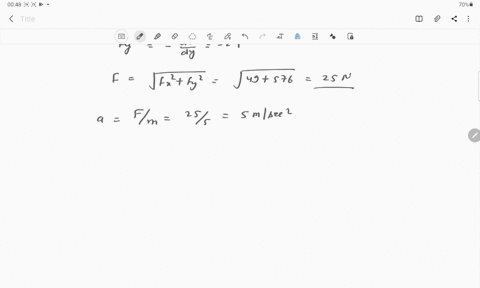 00:48
70%
Title
Fy = - dU/dy = -24
F = √(Fx² + Fy²) = √(49 + 576) = 25 N
a = F/m = 25/5 = 5 m/sec²